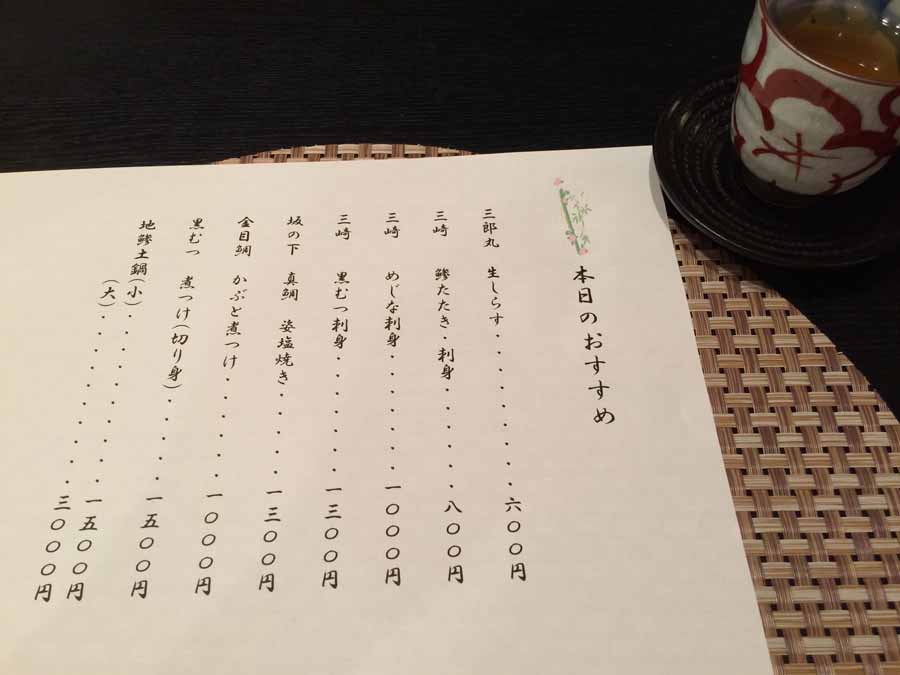 本日のおすすめ
三郎丸 生しらす・・・・・・・・六〇〇円
三崎 鯵たたき・刺身・・・・・八〇〇円
三崎 めじな刺身・・・・・・一〇〇〇円
三崎 黒むつ刺身・・・・・・一三〇〇円
坂の下 真鯛 姿塩焼き・・・・・一三〇〇円
金目鯛 かぶと煮つけ・・・・・・一〇〇〇円
黒むつ 煮つけ(切り身)・・・・・一五〇〇円
地鯵土鍋(小)・・・・・・・・・一五〇〇円
(大)・・・・・・・・・三〇〇〇円